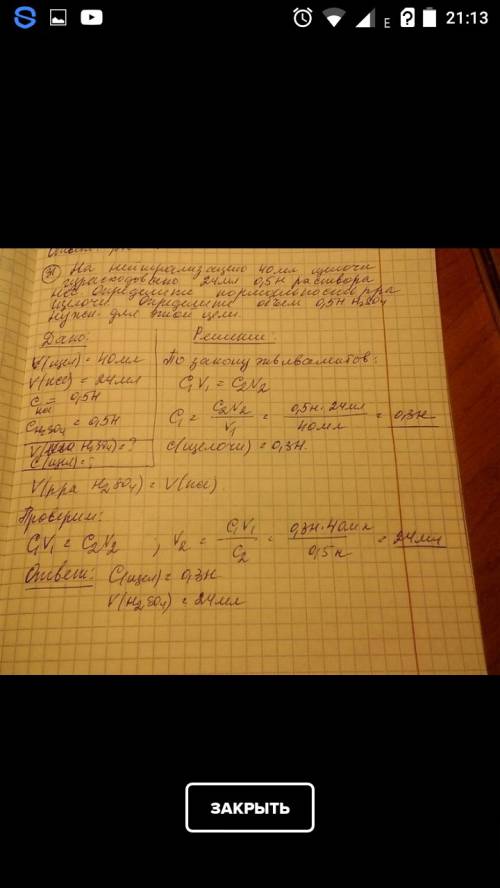 E
21:13
31 На нейтрализацию 40мл щелочи
израсходовано 24мл 0,5н раствора
HCl Определите нормальность рра
щелочи. Определите объем 0,5н H2SO4
нужн. для этой цели.
Дано:
V(щел) = 40мл
V(HCl) = 24мл
C HCl = 0,5н
C H2SO4 = 0,5н
H2SO4) = ?
C(щел) = ?
Решение:
По закону эквивалентов:
C1V1 = C2V2
C1 = C2V2/V1 = 0,5н·24мл/40мл = 0,3н
C(щелочи) = 0,3н.
V(рра H2SO4) = V(HCl)
Проверим:
C1V1 = C2V2 ; V2 = C1V1/C2 = 0,3н·40мл/0,5н = 24мл
Ответ: C(щел) = 0,3н
V(H2SO4) = 24мл
ЗАКРЫТЬ